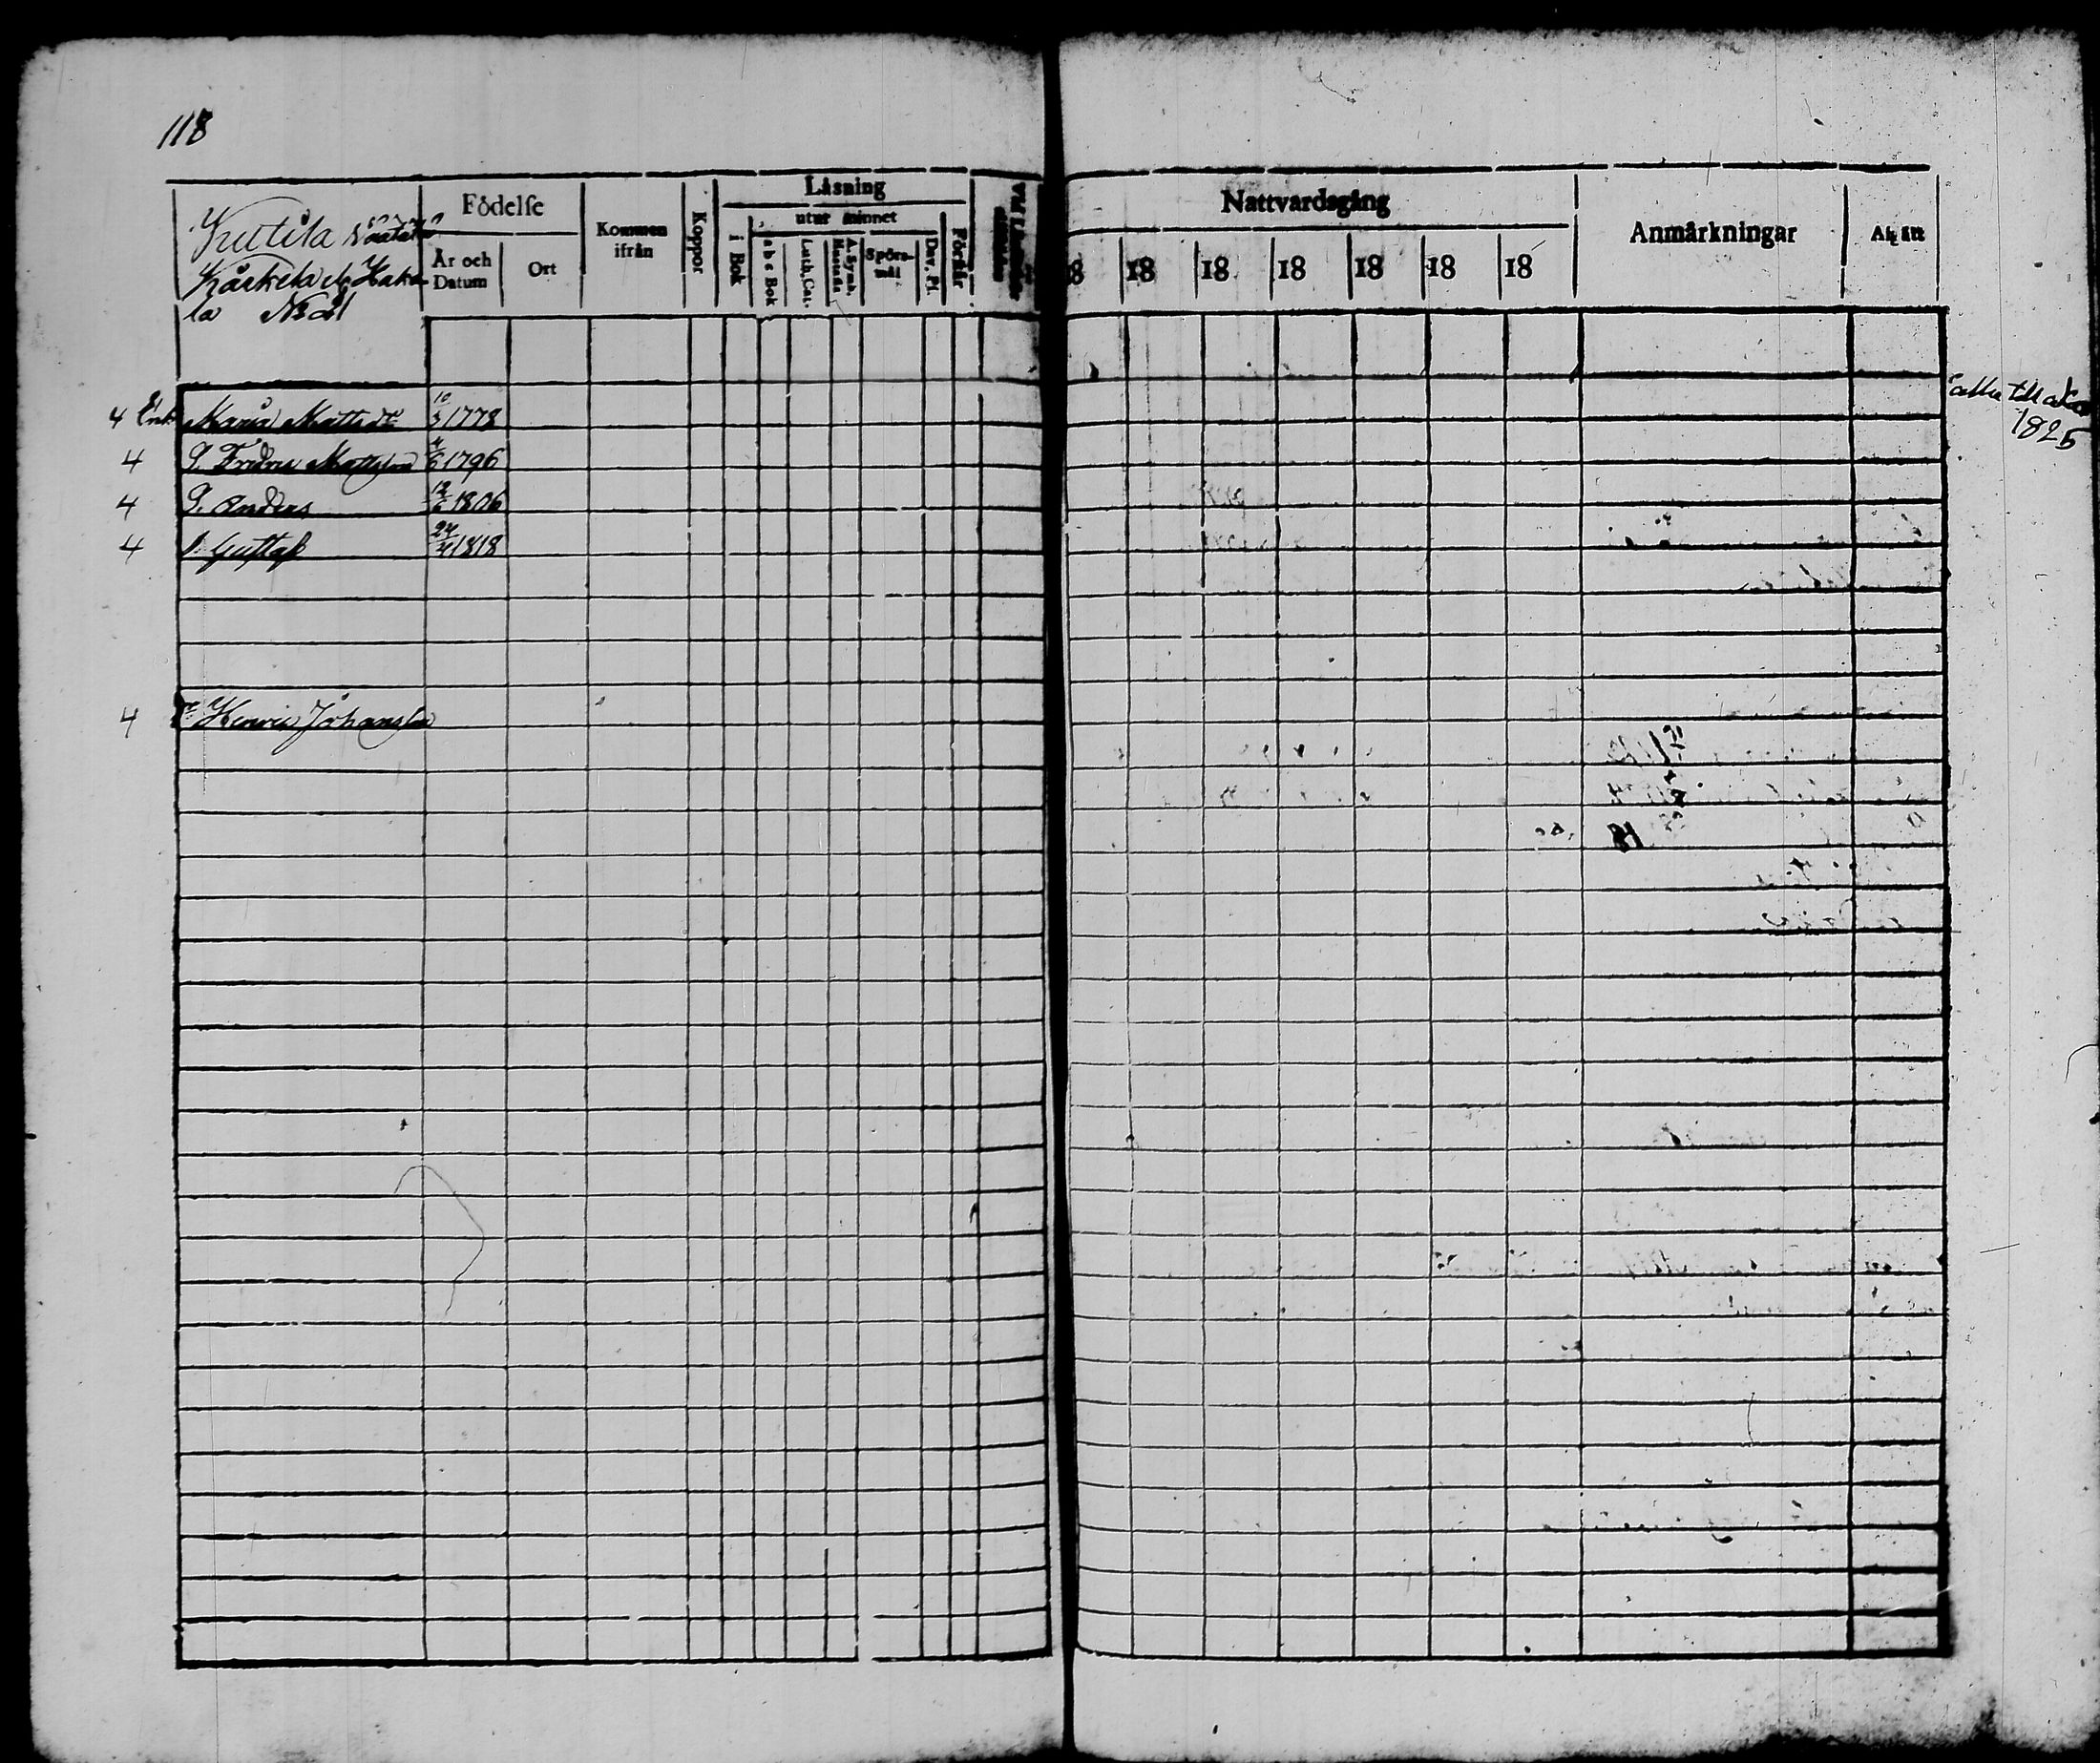 118
Kutila
Kårkela & Haka-
la No 21
Födelse
År och Datum
Ort
Kommen ifrån
Koppor
Läsning
utur minnet
i Bok
a b c Bok
Luth. Cat.
A. Symb.
Spörs-mål
Dav. Ps.
Förhår
Nattvardsgång
8 18 18 18 18 18 18
Anmärkningar
4 Enk. Maria Matts dr 10/5 1778
4 S. Fredric Mattsson 4/6 1796
4 S. Anders 12/6 1806
4 S. Gustaf 24/4 1818
4 Henric Johansson
alla till
1825